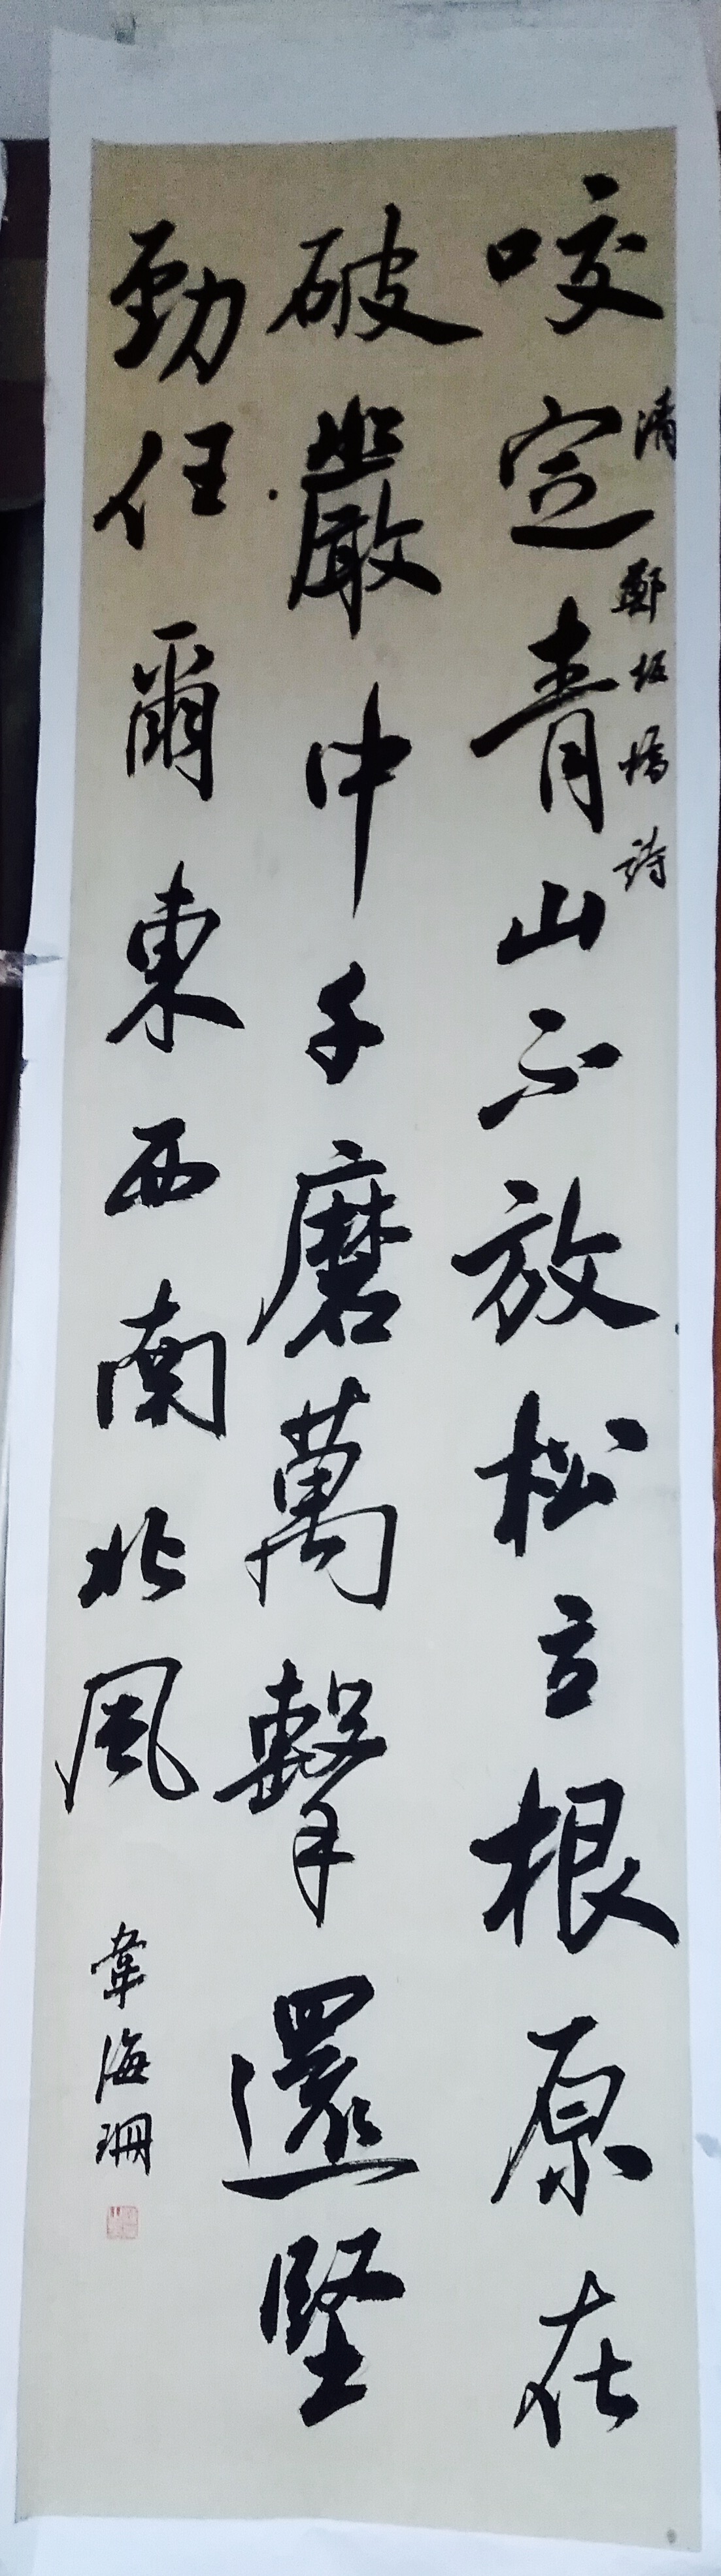 咬定青山不放松立根原在
清 鄭板橋詩
破巖中千磨萬擊還堅
勁任爾東西南北風
韋海珊